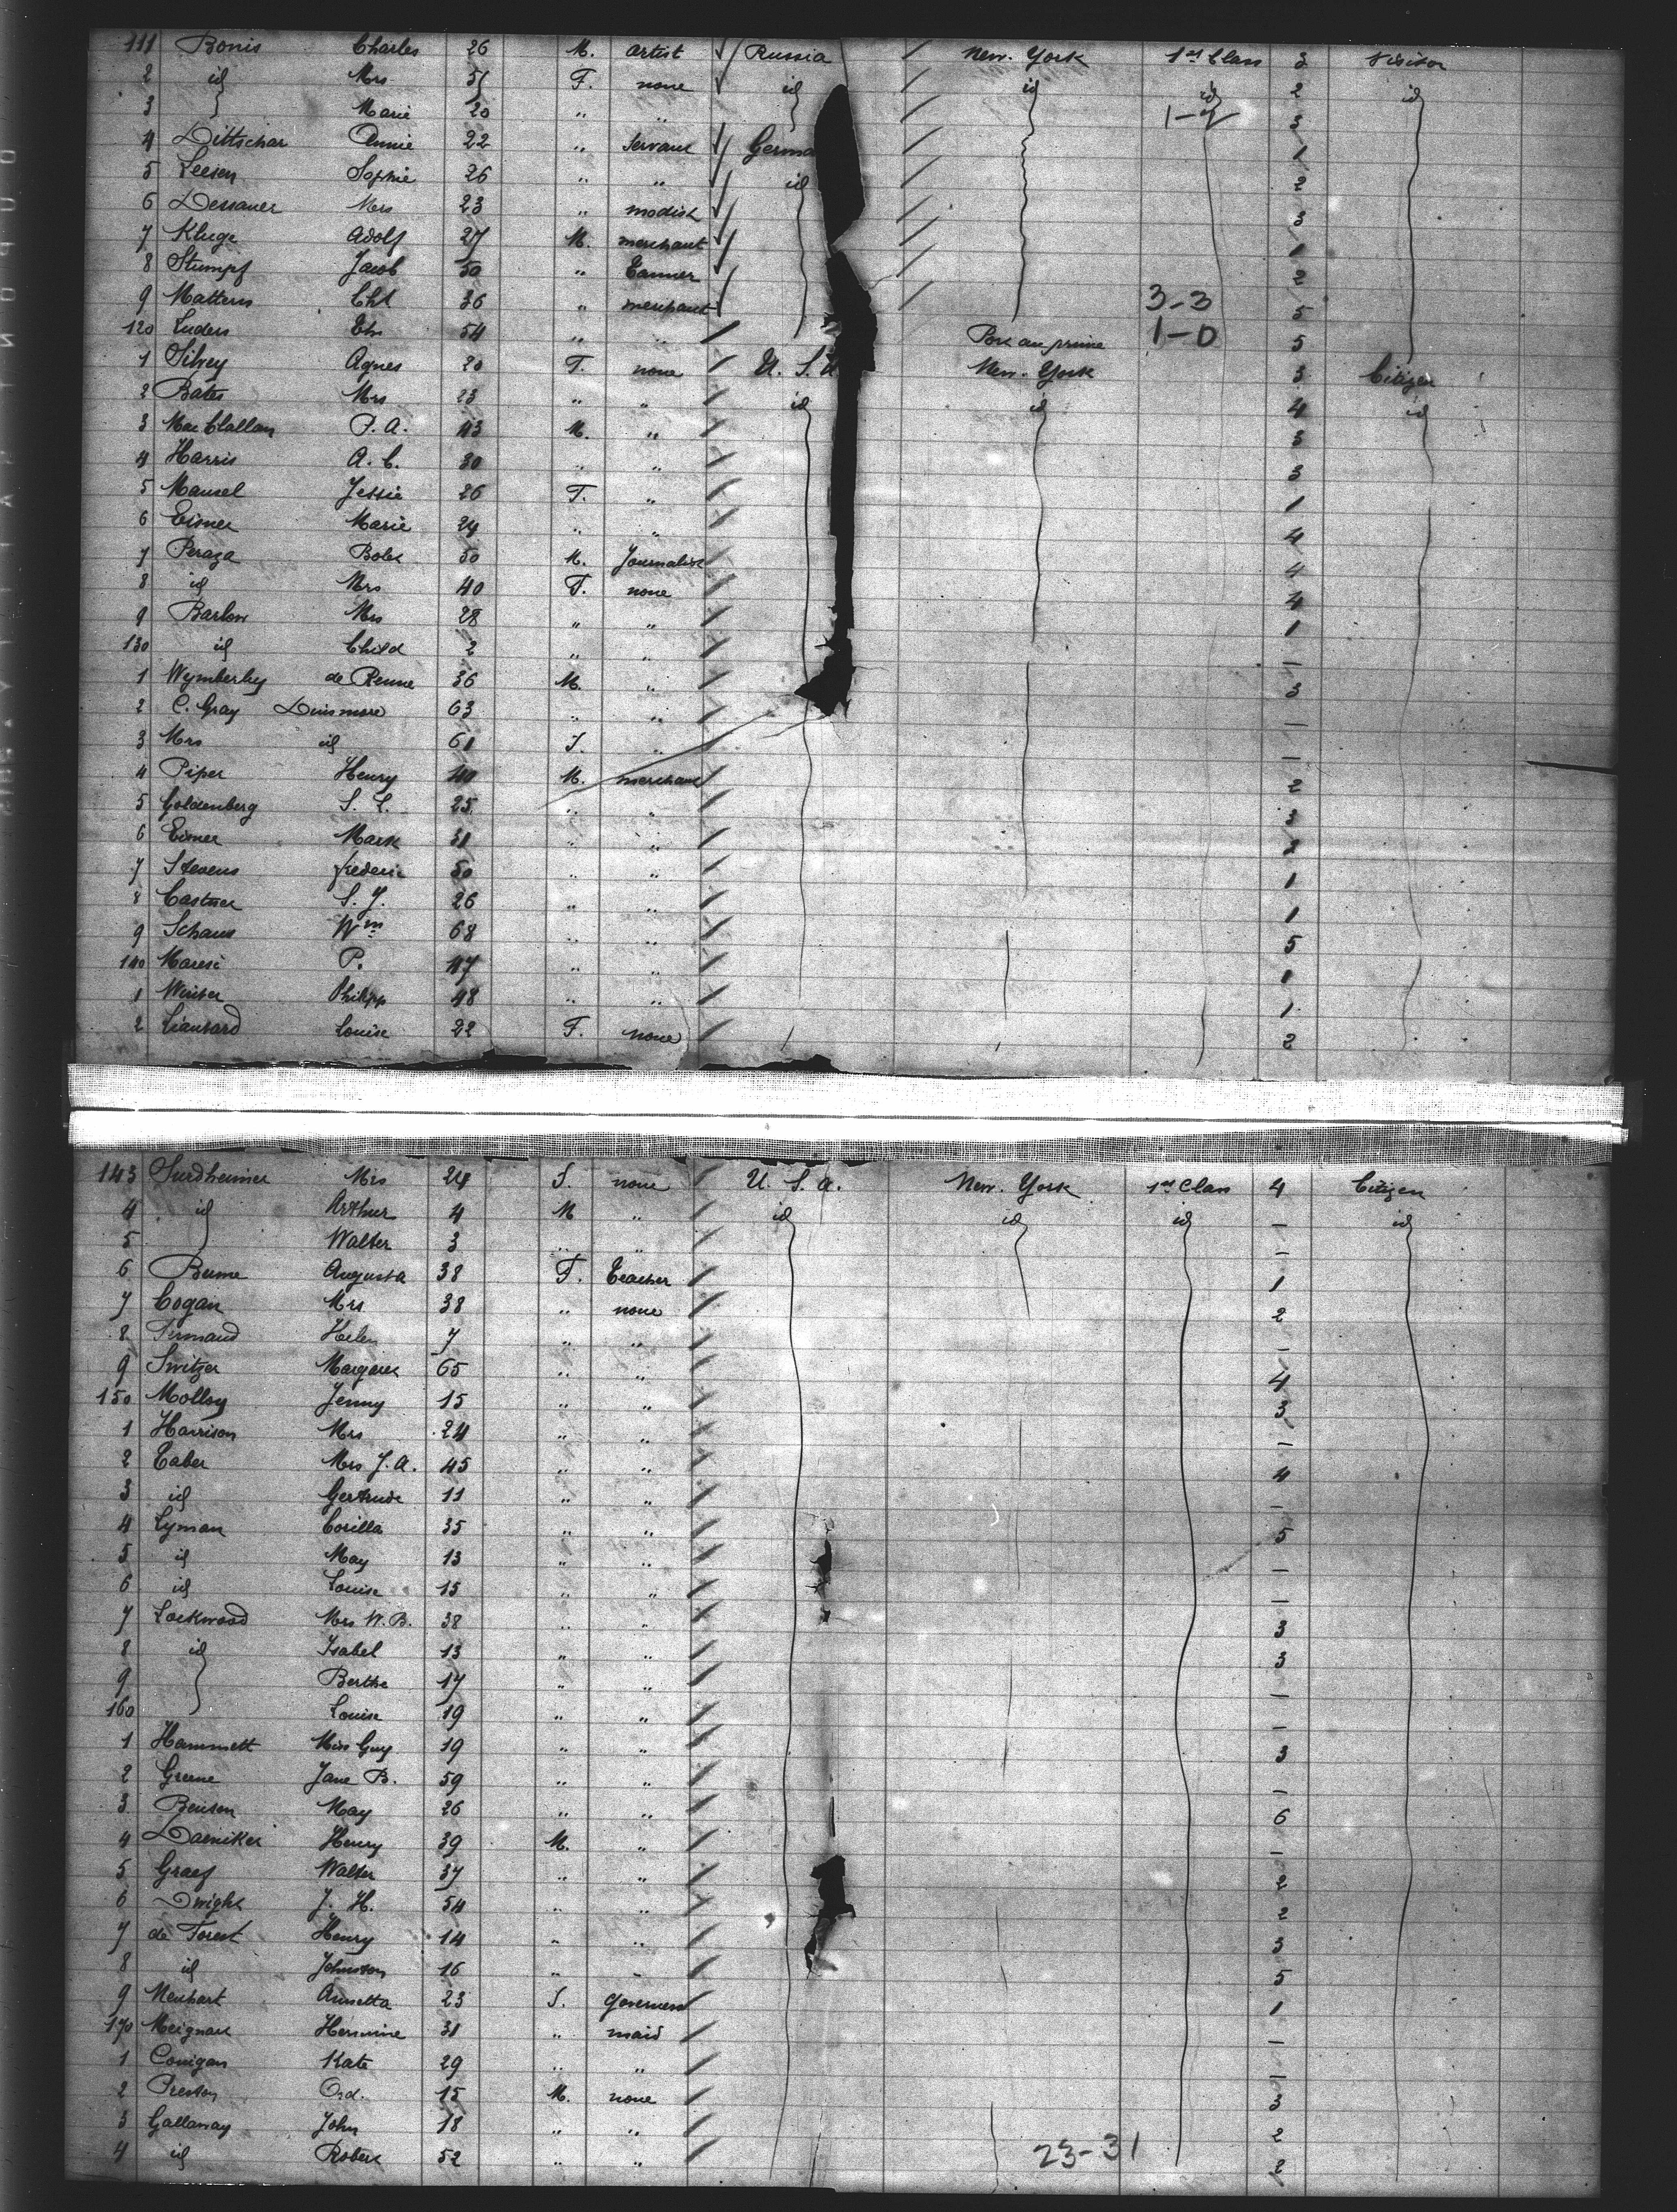 111 Bonis Charles 26 M. artist Russia New-York 1st Class 3 Visitor
2 id Mrs 51 F. none id id id 2 id
3 Marie 20 " " 1- 3
4 Dittschar Annie 22 " servant Germa 1
5 Leesen Sophie 26 " " id 2
6 Dessauer Mrs 23 " modist 3
7 Kluge Adolf 27 M. merchant 1
8 Stumpf Jacob 50 " Tanner 2
9 Mattern Cht 36 " merchant 3-3 5
120 Luders Et. 54 " " Port au prince 1-0 5
1 Silvey Agnes 20 F. none U. S. A New-York 3 Citizen
2 Bates Mrs 23 " " id id 4 id
3 Mac Clallan P. A. 43 M. " 3
4 Harris A. C. 30 " " 3
5 Mansel Jessie 26 F. " 1
6 Eisner Marie 24 " " 4
7 Peraza Bolet 50 M. Journalist 4
8 id Mrs 40 F. none 4
9 Barlow Mrs 28 " " 1
130 id Child 2 " " —
1 Wymberley de Renne 36 M. " 3
2 C. Gray Dinsmore 63 " " —
3 Mrs id 61 F. " —
4 Piper Henry 40 M. merchant 2
5 Goldenberg S. L. 25 " " 3
6 Eisner Mark 31 " " 3
7 Stevens frederic 50 " " 1
8 Castner S. J. 26 " " 1
9 Schaus Wm 68 " " 5
140 Maresi P. 47 " " 1
1 Winter Philipp 48 " " 1
2 Liautard Louise 22 F. none 2
143 Surdheimer Mrs 24 F. none U. S. A. New-York 1st Class 4 Citizen
4 id Arthur 4 M " id id id — id
5 Walter 3 " " —
6 Bume Augusta 38 F. Teacher 1
7 Cogan Mrs 38 " none 2
8 Firmaud Helen 7 " " —
9 Switzer Margaret 65 " " 4
150 Molloy Jenny 15 " " 3
1 Harrison Mrs 24 " " —
2 Taber Mrs J. A. 45 " " 4
3 id Gertrude 11 " " —
4 Lyman Corilla 35 " " 5
5 id May 13 " " —
6 id Louise 15 " " —
7 Lockwood Mrs W. B. 38 " " 3
8 id Isabel 13 " " 3
9 Berthe 17 " " —
160 Louise 19 " " —
1 Hammett Miss Guy 19 " " 3
2 Greene Jane B. 59 " " —
3 Benson May 26 " " 6
4 Daeniker Henry 39 M. " —
5 Graef Walter 37 " " 2
6 Dwight J. H. 54 " " 2
7 de Forest Henry 14 " " 3
8 id Johnston 16 " " 5
9 Neubart Annetta 23 F. governess 1
170 Meignan Hermine 31 " maid —
1 Conigan Kate 29 " " —
2 Preston Ord. 15 M. none 3
3 Gallaway John 18 " " 2
4 id Robert 52 " " 23-31 2